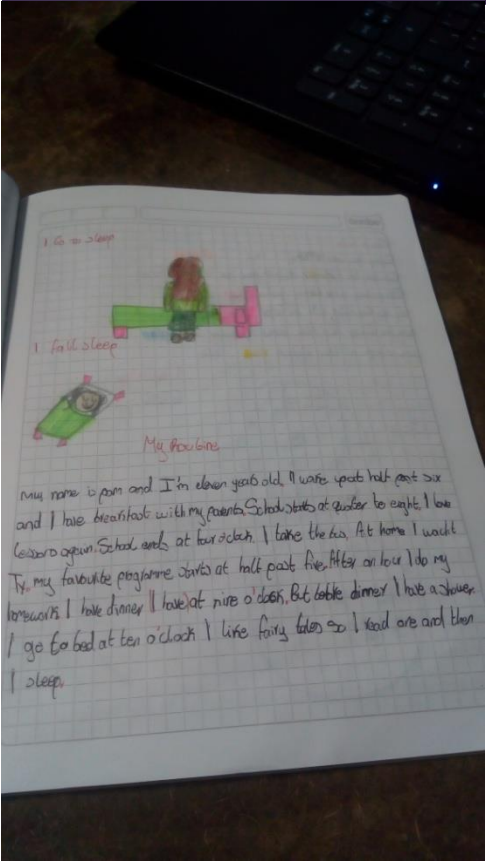 I Go to sleep
I fall sleep
My Routine
My name is pam and I'm eleven years old, I wake up at half past six
and I have breakfast with my parents. School starts at quarter to eight, I have
lessons again. School ends at four o'clock. I take the bus, At home I watch
Tv. my favourite programme starts at half past five. After an hour I do my
homework I have dinner (I have) at nine o'clock, But before dinner I have a shower
I go to bed at ten o'clock I like fairy tales so I read one and then
I sleep.